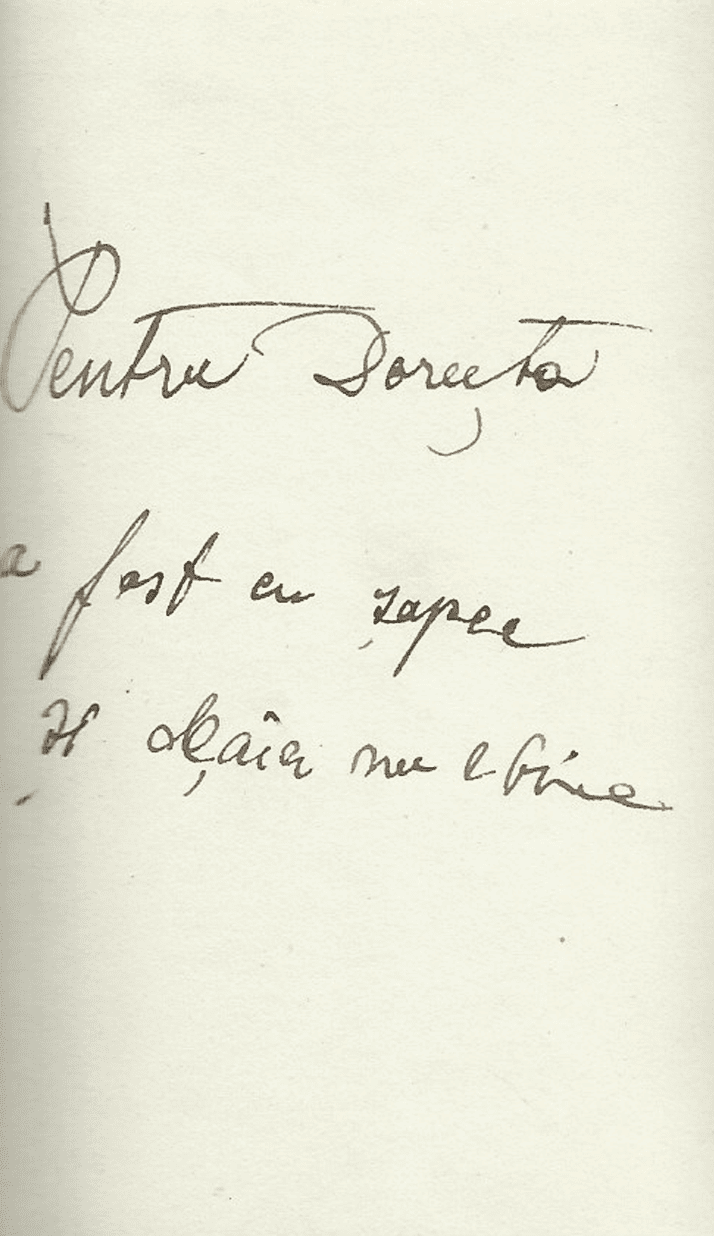 Pentru Doruța
a fost cu șapce
și Maia nu e bine